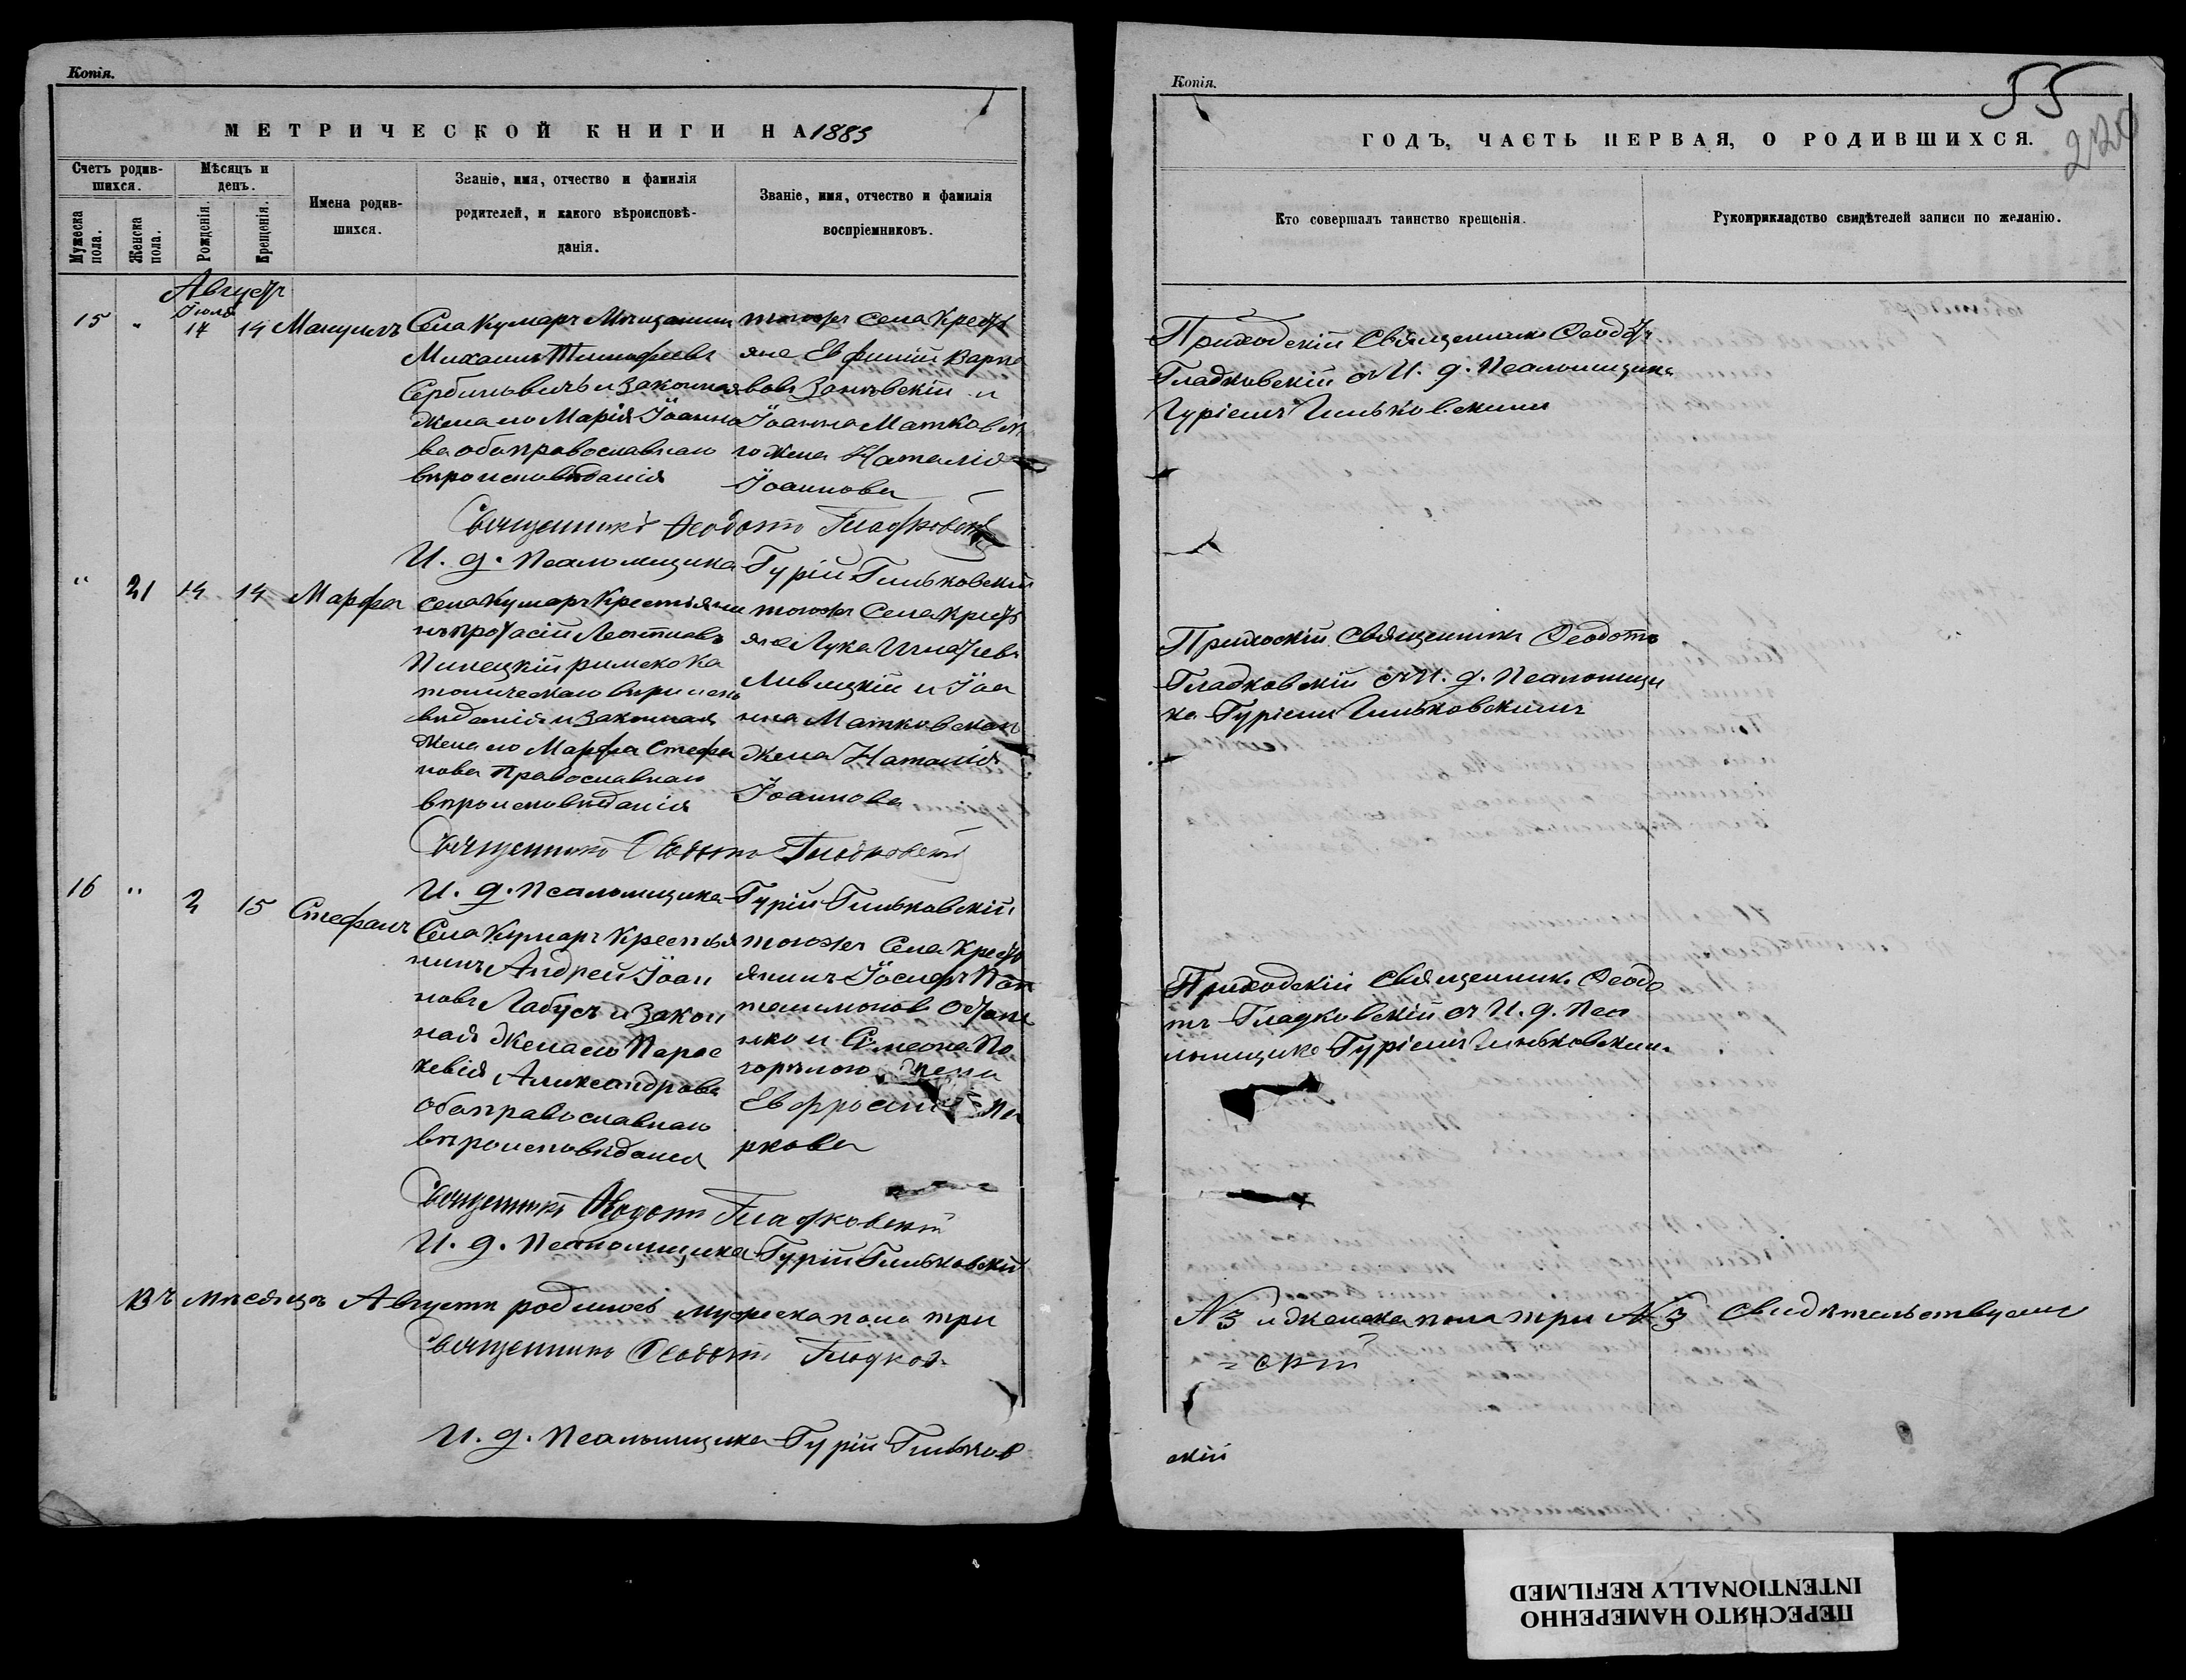 Копія.
МЕТРИЧЕСКОЙ КНИГИ НА 1885
Счетъ родив-
шихся.
Мѣсяцъ и
день.
Имена родив-
шихся.
Званіе, имя, отчество и фамилія
родителей, и какого вѣроисповѣ-
данія.
Званіе, имя, отчество и фамилія
воспріемниковъ.
Мужеска
пола.
Женска
пола.
Рожденія.
Крещенія.
Августъ
Іюля
15 " 17 14 Мануилъ
Села Кумаръ Мѣщанинъ
Михаилъ Тимофеевъ
Сербиновичъ и законная
жена его Марія Іоанно
ва оба православнаго
вѣроисповѣданія
тогожъ села Крестъ
яне Евфимій Варла
вовъ Заньвскій и
Іоанна Матковск
го жена Наталія
Іоаннова
Священникъ Ѳеодотъ Гладковскій
И. д. Псаломщика Гурій Гильковскій
" 21 14 14 Марфа
села Кумаръ Крестьяни
нъ Протасій Леонтиевъ
Пинецкій римско ка
толическаго вѣроиспо
вѣданія и законная
жена его Марфа Стефа
нова Православнаго
вѣроисповѣданія
тогожъ Села Кресть
яне Лука Игнатіевъ
Ливицкій и Іоа
нна Матковскаго
жена Наталія
Іоаннова
Священникъ Ѳеодотъ Гладковскій
И. д. Псаломщика Гурій Гильковскій
16 " 2 15 Стефанъ
Села Кумаръ Крестья
нинъ Андрей Іоан
новъ Лабусъ и Закон
ная жена его Парас
кевія Александрова
оба православнаго
вѣроисповѣданія
тогожъ Села Кресть
янинъ Іосифъ Пан
телимонов
нко и Симеона По
горѣлого жена
Евфросинія Ма
ркова
Священникъ Ѳеодотъ Гладковскій
И. д. Псаломщика Гурій Гильковскій
Въ мѣсяцѣ Августѣ родилось мужеска пола три
Священникъ Ѳеодотъ Гладков-
И. д. Псаломщика Гурій Гильков
Копія.
55
220
ГОДЪ, ЧАСТЬ ПЕРВАЯ, О РОДИВШИХСЯ.
Кто совершалъ таинство крещенія.
Рукоприкладство свидѣтелей записи по желанію.
Приходскій Священникъ Ѳеодотъ
Гладковскій съ И. д. Псаломщика
Гуріемъ Гильковскимъ
Прихоскій Священникъ Ѳеодотъ
Гладковскій съ И. д. Псаломщи
ка Гуріемъ Гильковскимъ
Приходскій Священникъ Ѳеодо
тъ Гладковскій съ И. д. Пса
ломщика Гуріемъ Гильковским
№3 и женска пола три №3 Свидѣтельствуемъ
= скій
скій
ПЕРЕСНЯТО НАМЕРЕННО
INTENTIONALLY REFILMED